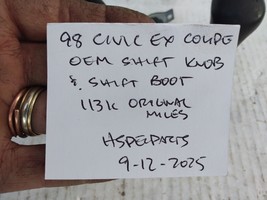 98 CIVIC EX COUPE
OEM SHIFT KNOB
& SHIFT BOOT
113K ORIGINAL
MILES
HSPECPARTS
9-12-2025